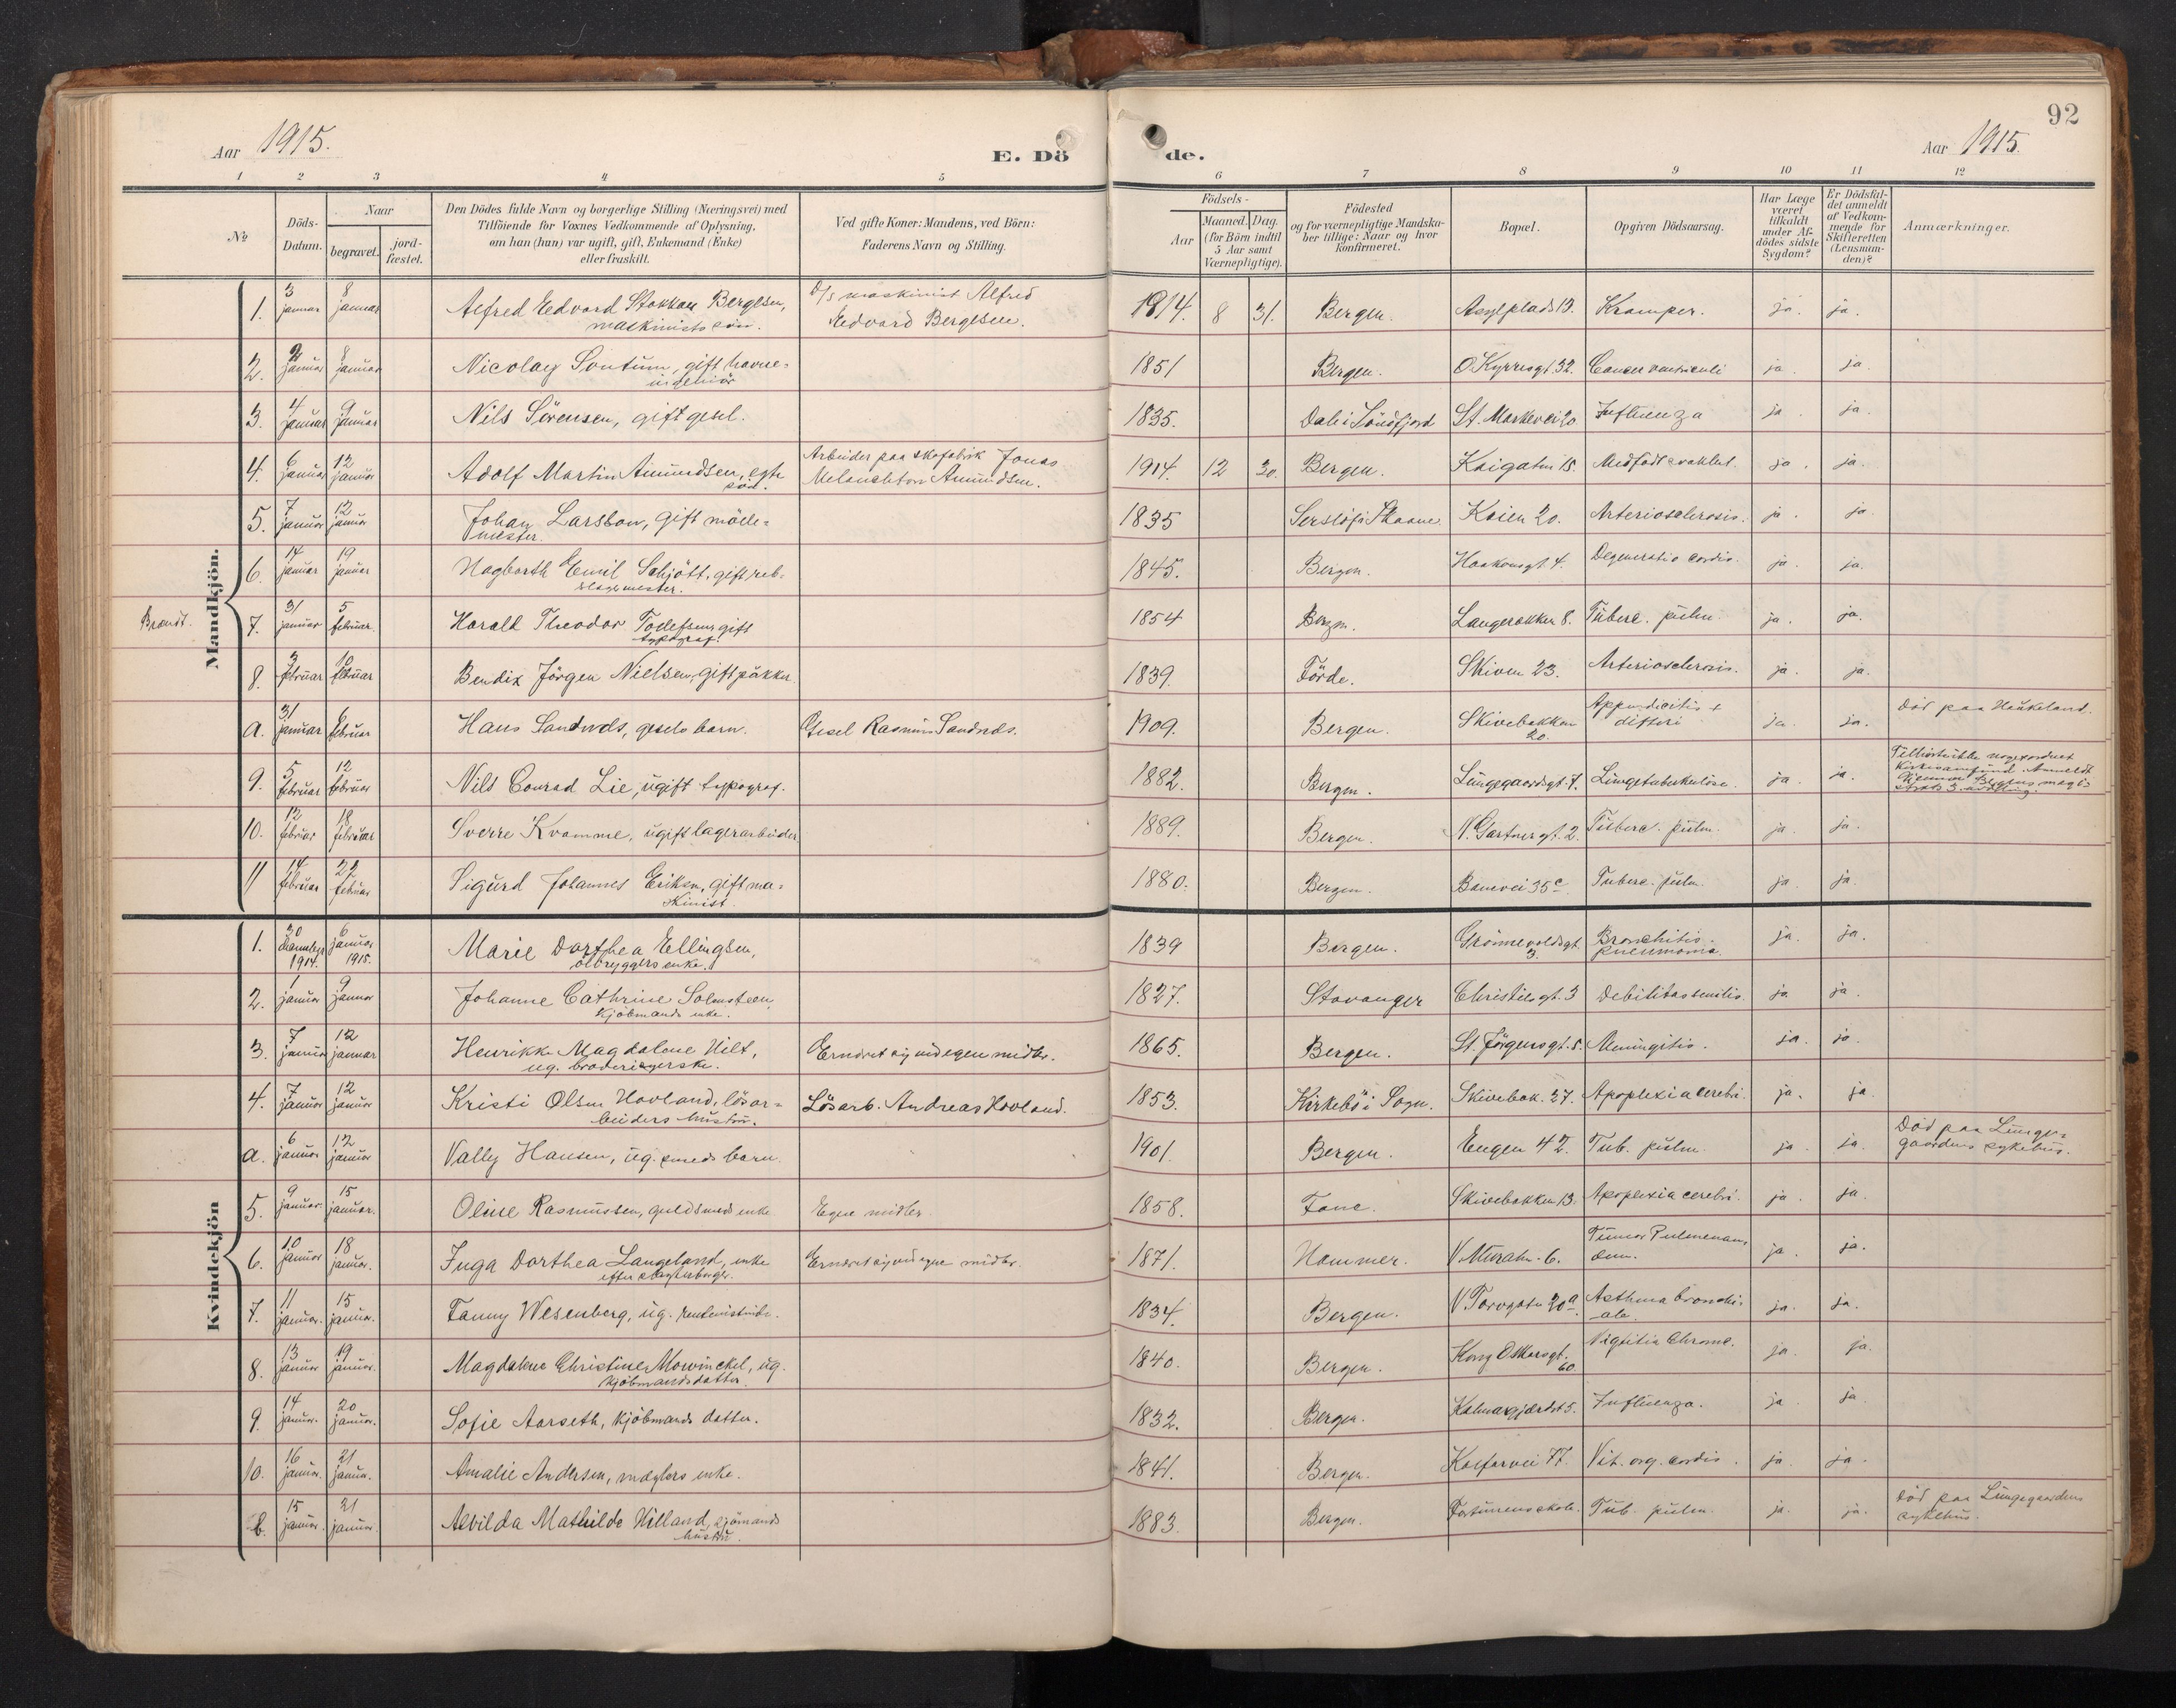 92
Aar 1915.
E. Dö
de.
Aar 1915.
1 2 3 4 5 6 7 8 9 10 11 12
№
Döds-
Datum.
Naar
begravet.
jord-
fæstet.
Den Dödes fulde Navn og borgerlige Stilling (Næringsvei) med
Tilföiende for Voxnes Vedkommende af Oplysning,
om han (hun) var ugift, gift, Enkemand (Enke)
eller fraskilt.
Ved gifte Koner: Mandens, ved Börn:
Faderens Navn og Stilling.
Födsels-
Aar
Maaned. Dag.
(for Börn indtil
5 Aar samt
Værnepligtige).
Födested
og for værnepligtige Mandska-
ber tillige: Naar og hvor
konfirmeret.
Bopæl.
Opgiven Dödsaarsag.
Har Læge
været
tilkaldt
under Af-
dödes sidste
Sygdom?
Er Dödsfal-
det anmeldt
af Vedkom-
mende for
Skifteretten
(Lensman-
den)?
Anmærkninger.
Mandkjön.
1. 3 januar 8 januar Alfred Edvard Stokken Bergesen, D/s maskinist Alfred 1914. 8 31. Bergen. Asylplads 13. Kramper. ja. ja.
maskinists søn. Edvard Bergesen.
2. 2 januar 8 januar Nicolay Sontum, gift havne- 1851 Bergen. O Kyrresgt. 32. Cancer ventriculi ja. ja.
ingeniör
3. 4 januar 9 januar Nils Sörensen, gift gesel. 1835. Dale i Söndfjord St. Markevei 20. Influenza ja. ja.
4. 6 januar 12 januar Adolf Martin Amundsen, egte Arbeider paa skofabrik Jonas 1914. 12 30. Bergen. Kaigaten 15. Medfödt svakhet. ja. ja.
søn. Melanchton Amundsen.
5. 7 januar 12 januar Johan Larsson, gift möle- 1835 Skaane. Kaien 20. Arteriosclerosis. ja. ja.
mester.
6. 14 januar 19 januar Hagbarth Emil Schjött, gift reb- 1845. Bergen. Haakonsgt. 4. Degeneratio cordis. ja. ja.
slagermester.
Brandt.
7. 31 januar 5 februar. Harald Theodor Tollefsen, gift 1854 Bergen. Langebakken 8. Tuberc. pulm. ja. ja.
typograf.
8. 3 februar 10 februar Bendix Jörgen Nielsen, gift pakker. 1839. Förde. Skiven 23. Arteriosclerosis. ja. ja.
a. 31 januar 6 februar Hans Sandnæs, gesels barn. Gesel Rasmus Sandnæs. 1909. Bergen. Skivebakken 20. Appendicitis + difteri ja. ja. Död paa Haukeland.
9. 5 februar 12 februar Nils Conrad Lie, ugift typograf. 1882. Bergen. Lungegaardsgt. 7. Lungetuberkulose. ja. ja.
10. 12 februar 18 februar Sverre Kvamme, ugift lagerarbeider. 1889. Bergen. N. Gartnergt. 2. Tuberc. pulm. ja. ja.
11 14 februar 22 februar Sigurd Johannes Eriksen, gift ma- 1880. Bergen. Banevei 35c. Tuberc. pulm. ja. ja.
skinist.
Kvindekjön
1. 30 december 1914. 6 januar 1915. Marie Dorthea Ellingsen, 1839 Bergen. Grönnevoldsgt. 3. Bronchitis. pneumonia. ja. ja.
ölbryggers enke.
2. 1 januar 9 januar Johanne Cathrine Solensteen, 1827. Stavanger Christiesgt. 3 Debilitas senilis. ja. ja.
kjöbmands enke.
3. 7 januar 12 januar Henrikke Magdalene Hilt, Ernæret sig ved egne midler. 1865. Bergen. St. Jörgensgt. 5. Meningitis. ja. ja.
ug. broderigerske.
4. 7 januar 12 januar Kristi Olsen Hovland, lösar- Lösarb. Andreas Hovland. 1853. Kirkebö i Sogn. Skivebak. 27. Apoplexia cerebri. ja. ja.
beiders hustru.
a. 6 januar 12 januar Vally Hansen, ug. smeds barn. 1901. Bergen. Engen 42. Tub. pulm. ja. ja. Död paa Lunge-
gaardens sykehus.
5. 9 januar. 15 januar. Oline Rasmussen, guldsmeds enke Egne midler. 1858. Fane. Skivebakken 13. Apoplexia cerebri. ja. ja.
6. 10 januar 18 januar. Inga Dorthea Langeland, enke Ernæret sig ved egne midler. 1871. Hammer. V. Muralm. 6. Tumor ja. ja.
7. 11 januar. 15 januar. Fanny Wesenberg, ug. rentenistinde. 1834. Bergen. V Torvgate 20a. Asthma bronchi-
ale. ja. ja.
8. 13 januar 19 januar. Magdalene Christine Mowinckel, ug. 1840. Bergen. Kong Oskarsgt. 60. ja. ja.
kjöbmandsdatter.
9. 14 januar. 20 januar. Sofie Aarseth, kjöbmands datter. 1832. Bergen. Kalmargjærdet 5. Influenza. ja. ja.
10. 16 januar. 21 januar. Amalie Andersen, mæglers enke. 1841. Bergen. Kalfarvei 77. Vit. org. cordis. ja. ja.
b. 15 januar. 21 januar. Alvilda Mathilde Hilland, sjömands 1883. Bergen. Tub. pulm. ja. ja. Död paa Lungegaardens
hustru. sykehus.